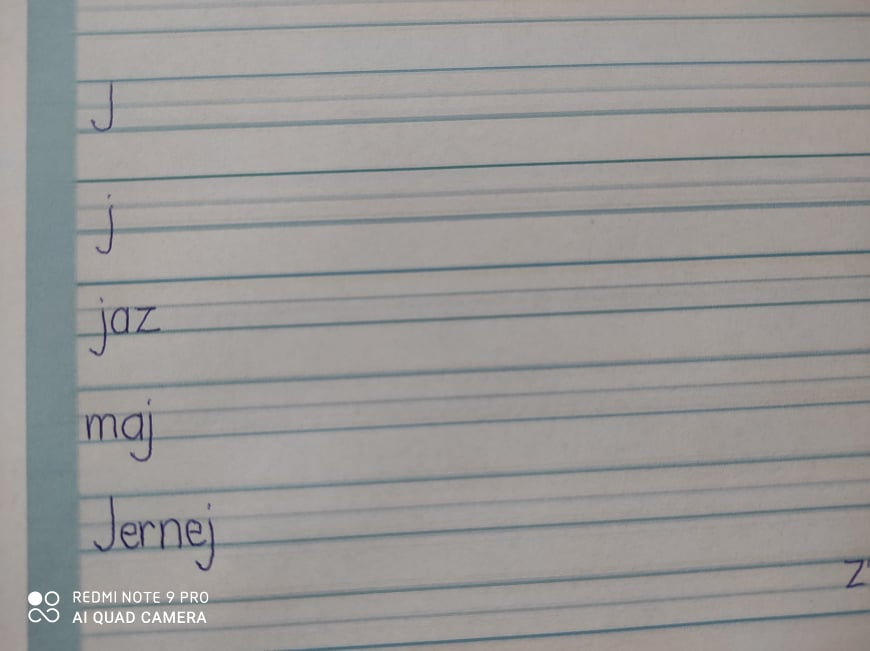 J
j
jaz
maj
Jernej
z
REDMI NOTE 9 PRO
AI QUAD CAMERA